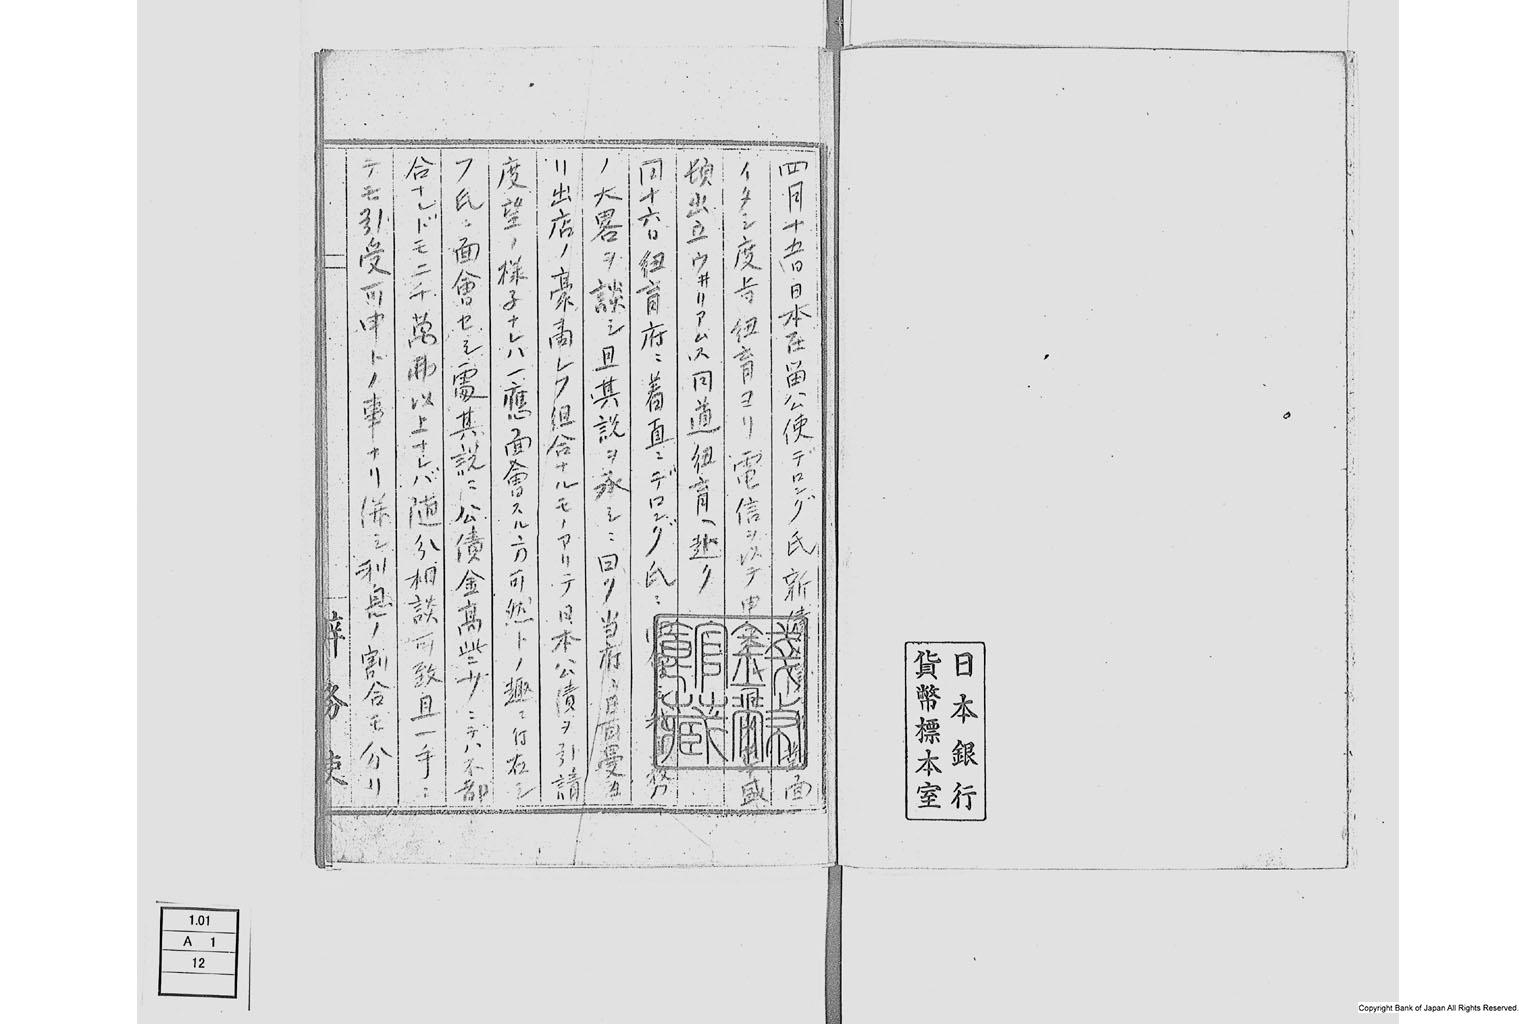 日本銀行
貨幣標本室
四月十五日日本在留公使デロング氏新債 面
イタシ度旨紐育ヨリ電信ヲ以テ申 盛
頓出立ウヰリアムス同道紐育ヘ趣ク
同十六日紐育府ニ着直ニデロング氏ニ
ノ大畧ヲ談シ且其説ヲ承シニ同ク当府ニ
リ出店ノ豪商レフ組合ナルモノアリテ日本公債ヲ引請
度望ノ様子ナレハ一應面會スル方可然トノ趣ニ付右レ
フ氏ニ面會セシ處其説ニ公債金高些少ニテハ不都
合ナレドモ二千萬弗以上ナレバ随分相談可致且一手ニ
テモ引受可申トノ事ナリ併シ利息ノ割合モ分リ
辨務使
1.01
A 1
12
Copyright Bank of Japan All Rights Reserved.